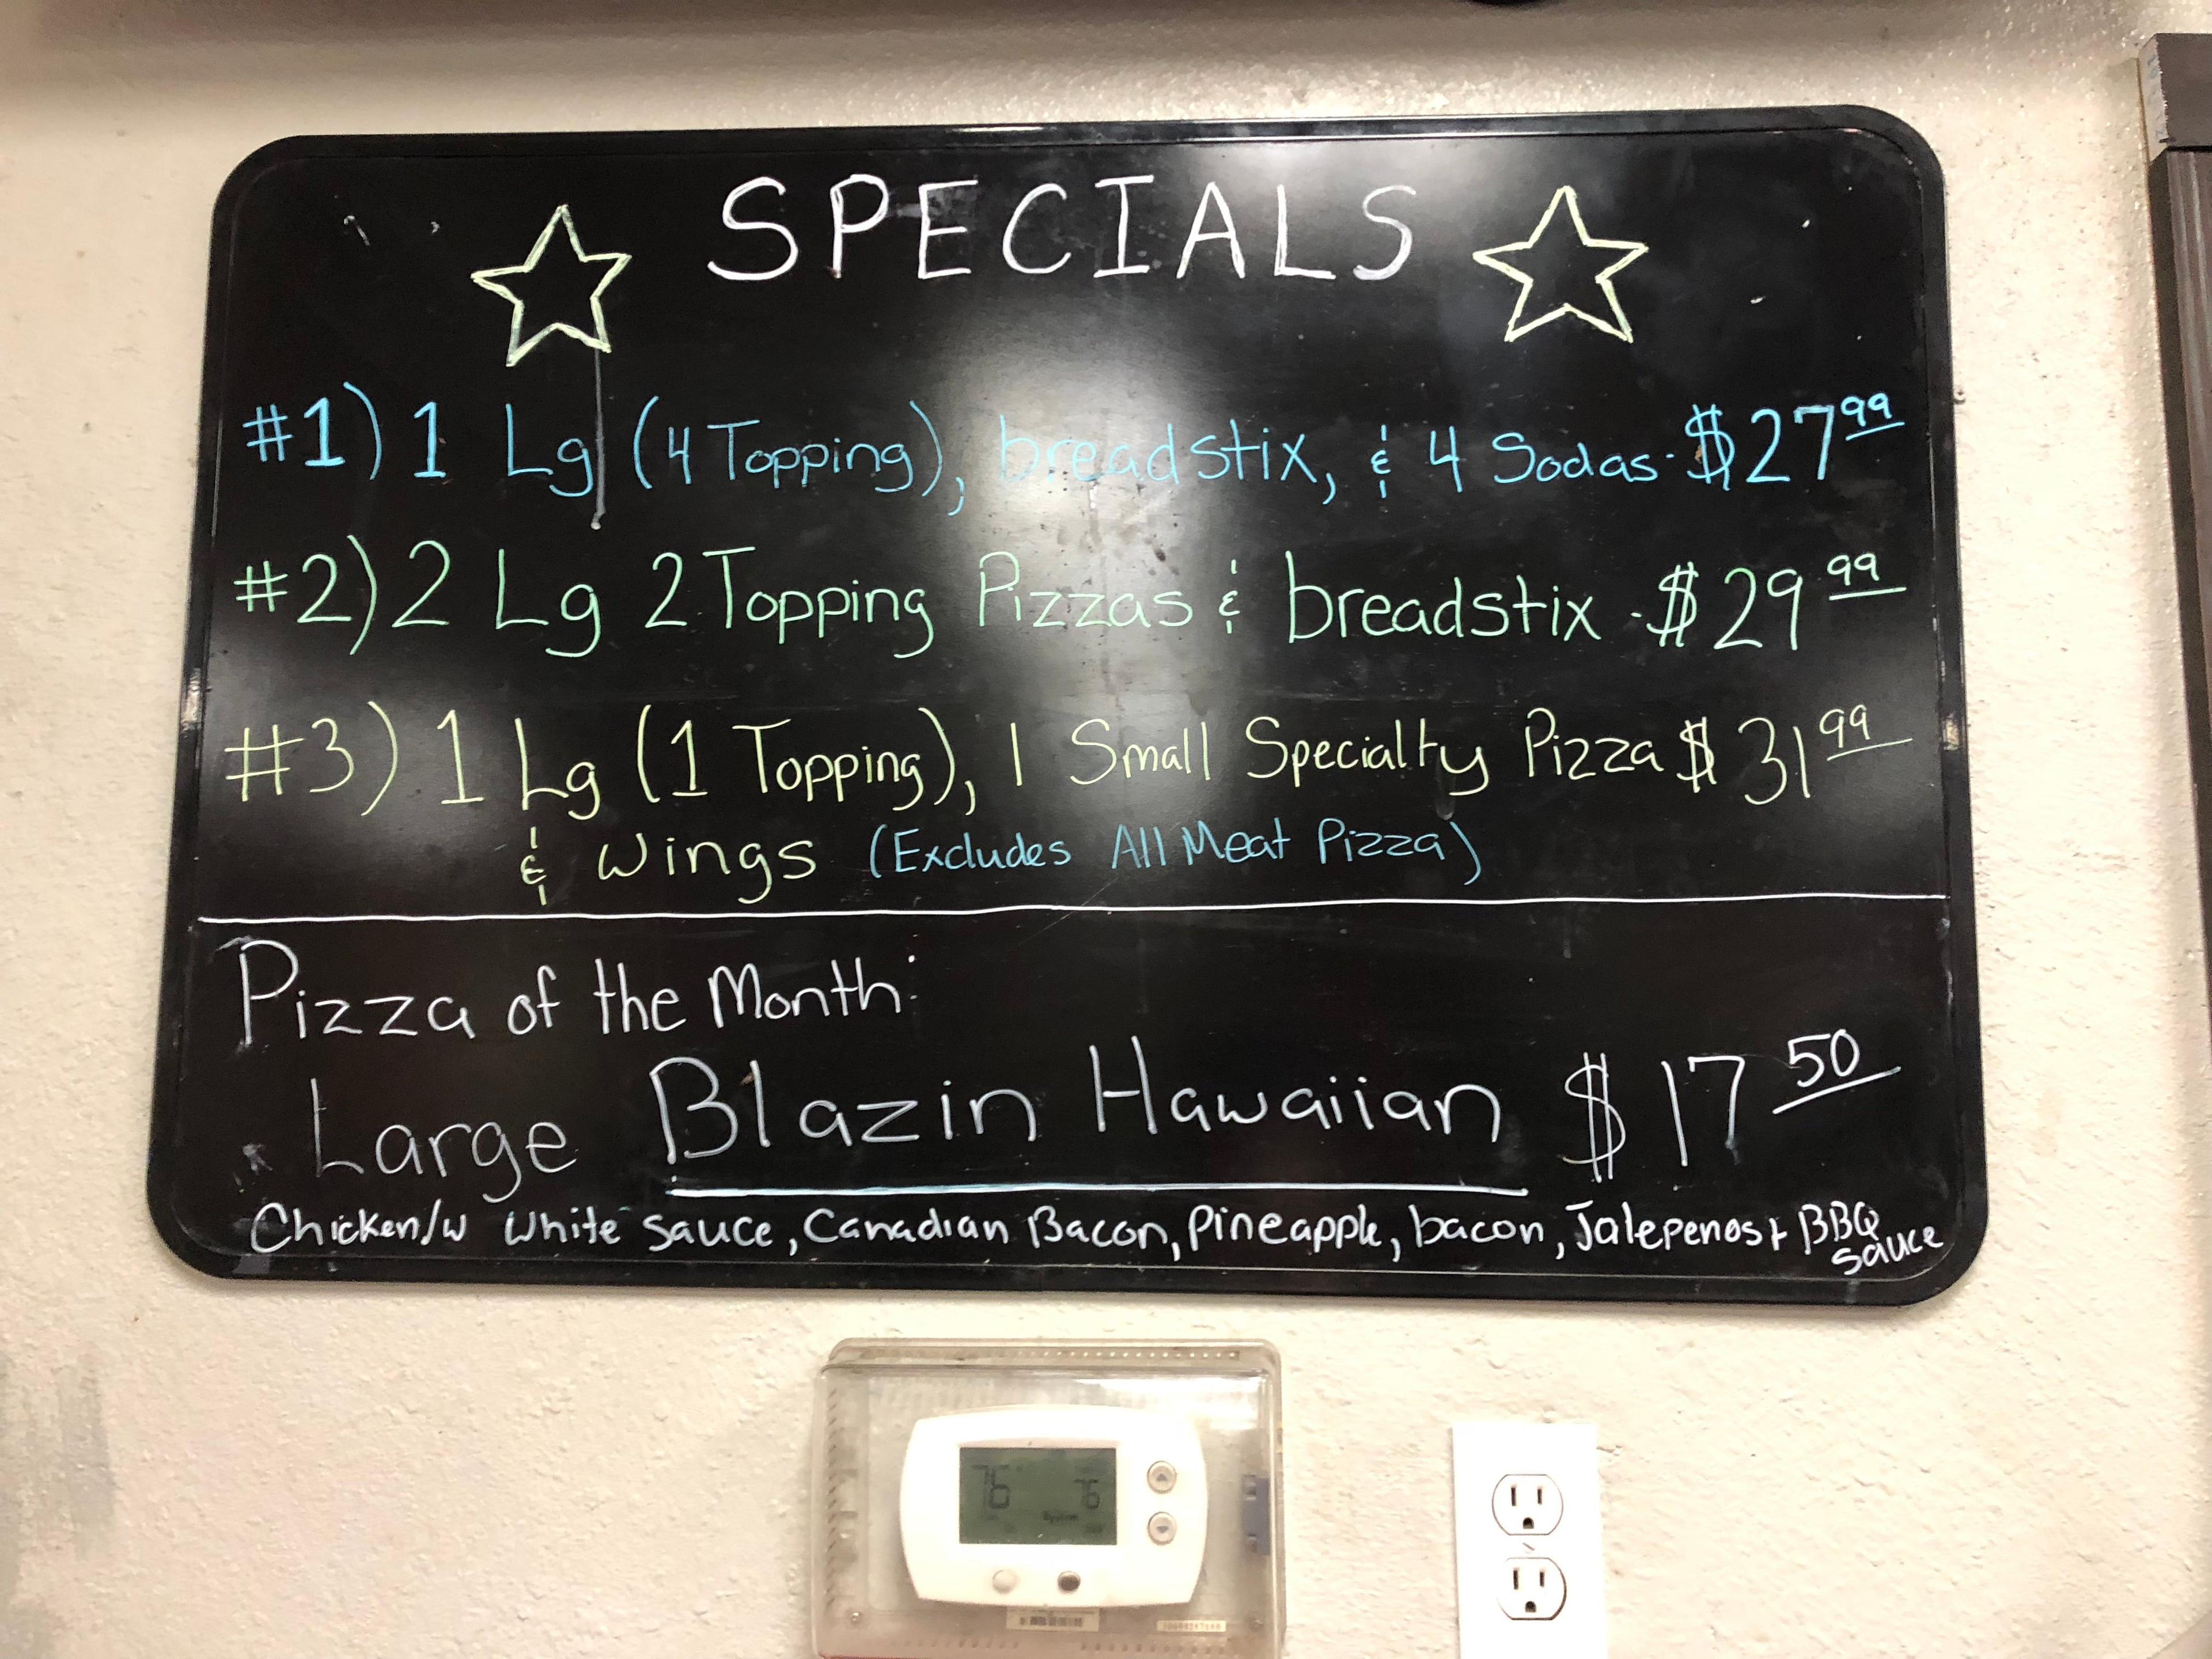 SPECIALS
#1) 1 Lg (4 Topping), breadstix, & 4 Sodas - $27.99
#2) 2 Lg 2 Topping Pizzas & breadstix - $29.99
#3) 1 Lg (1 Topping), 1 Small Specialty Pizza $31.99
& Wings (Excludes All Meat Pizza)
Pizza of the Month:
Large Blazin Hawaiian $17.50
Chicken/w White Sauce, Canadian Bacon, Pineapple, bacon, Jalepenos + BBQ
sauce
76 76
System